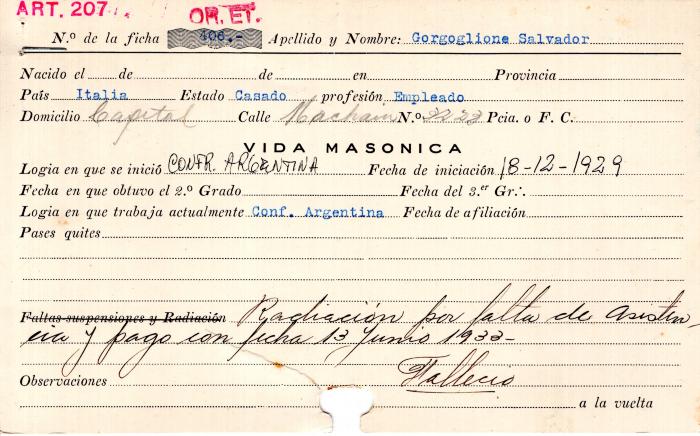 ART. 207 OR. ET.
N.º de la ficha 406.- Apellido y Nombre: Gorgoglione Salvador
Nacido el de de en Provincia
País Italia Estado Casado profesión Empleado
Domicilio Capital Calle Machain N.º Pcia. o F. C.
VIDA MASONICA
Logia en que se inició CONFR. ARGENTINA Fecha de iniciación 18-12-1929
Fecha en que obtuvo el 2.º Grado Fecha del 3.er Gr∴
Logia en que trabaja actualmente Conf. Argentina Fecha de afiliación
Pases quites
Faltas suspensiones y Radiación Radiación por falta de asisten
cia y pago con fecha 13 Junio 1933-
Observaciones Falleció
a la vuelta